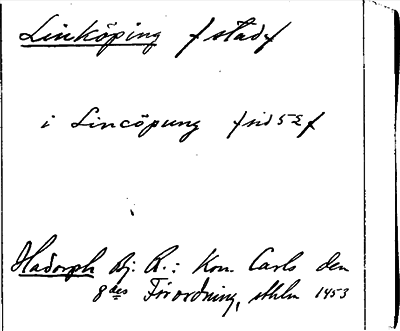 Linköping /stad/
i Lincöpung /sid 52/
Hadorph Bj: R.: Kon. Carls den
8des Förordning, sthlm 1453